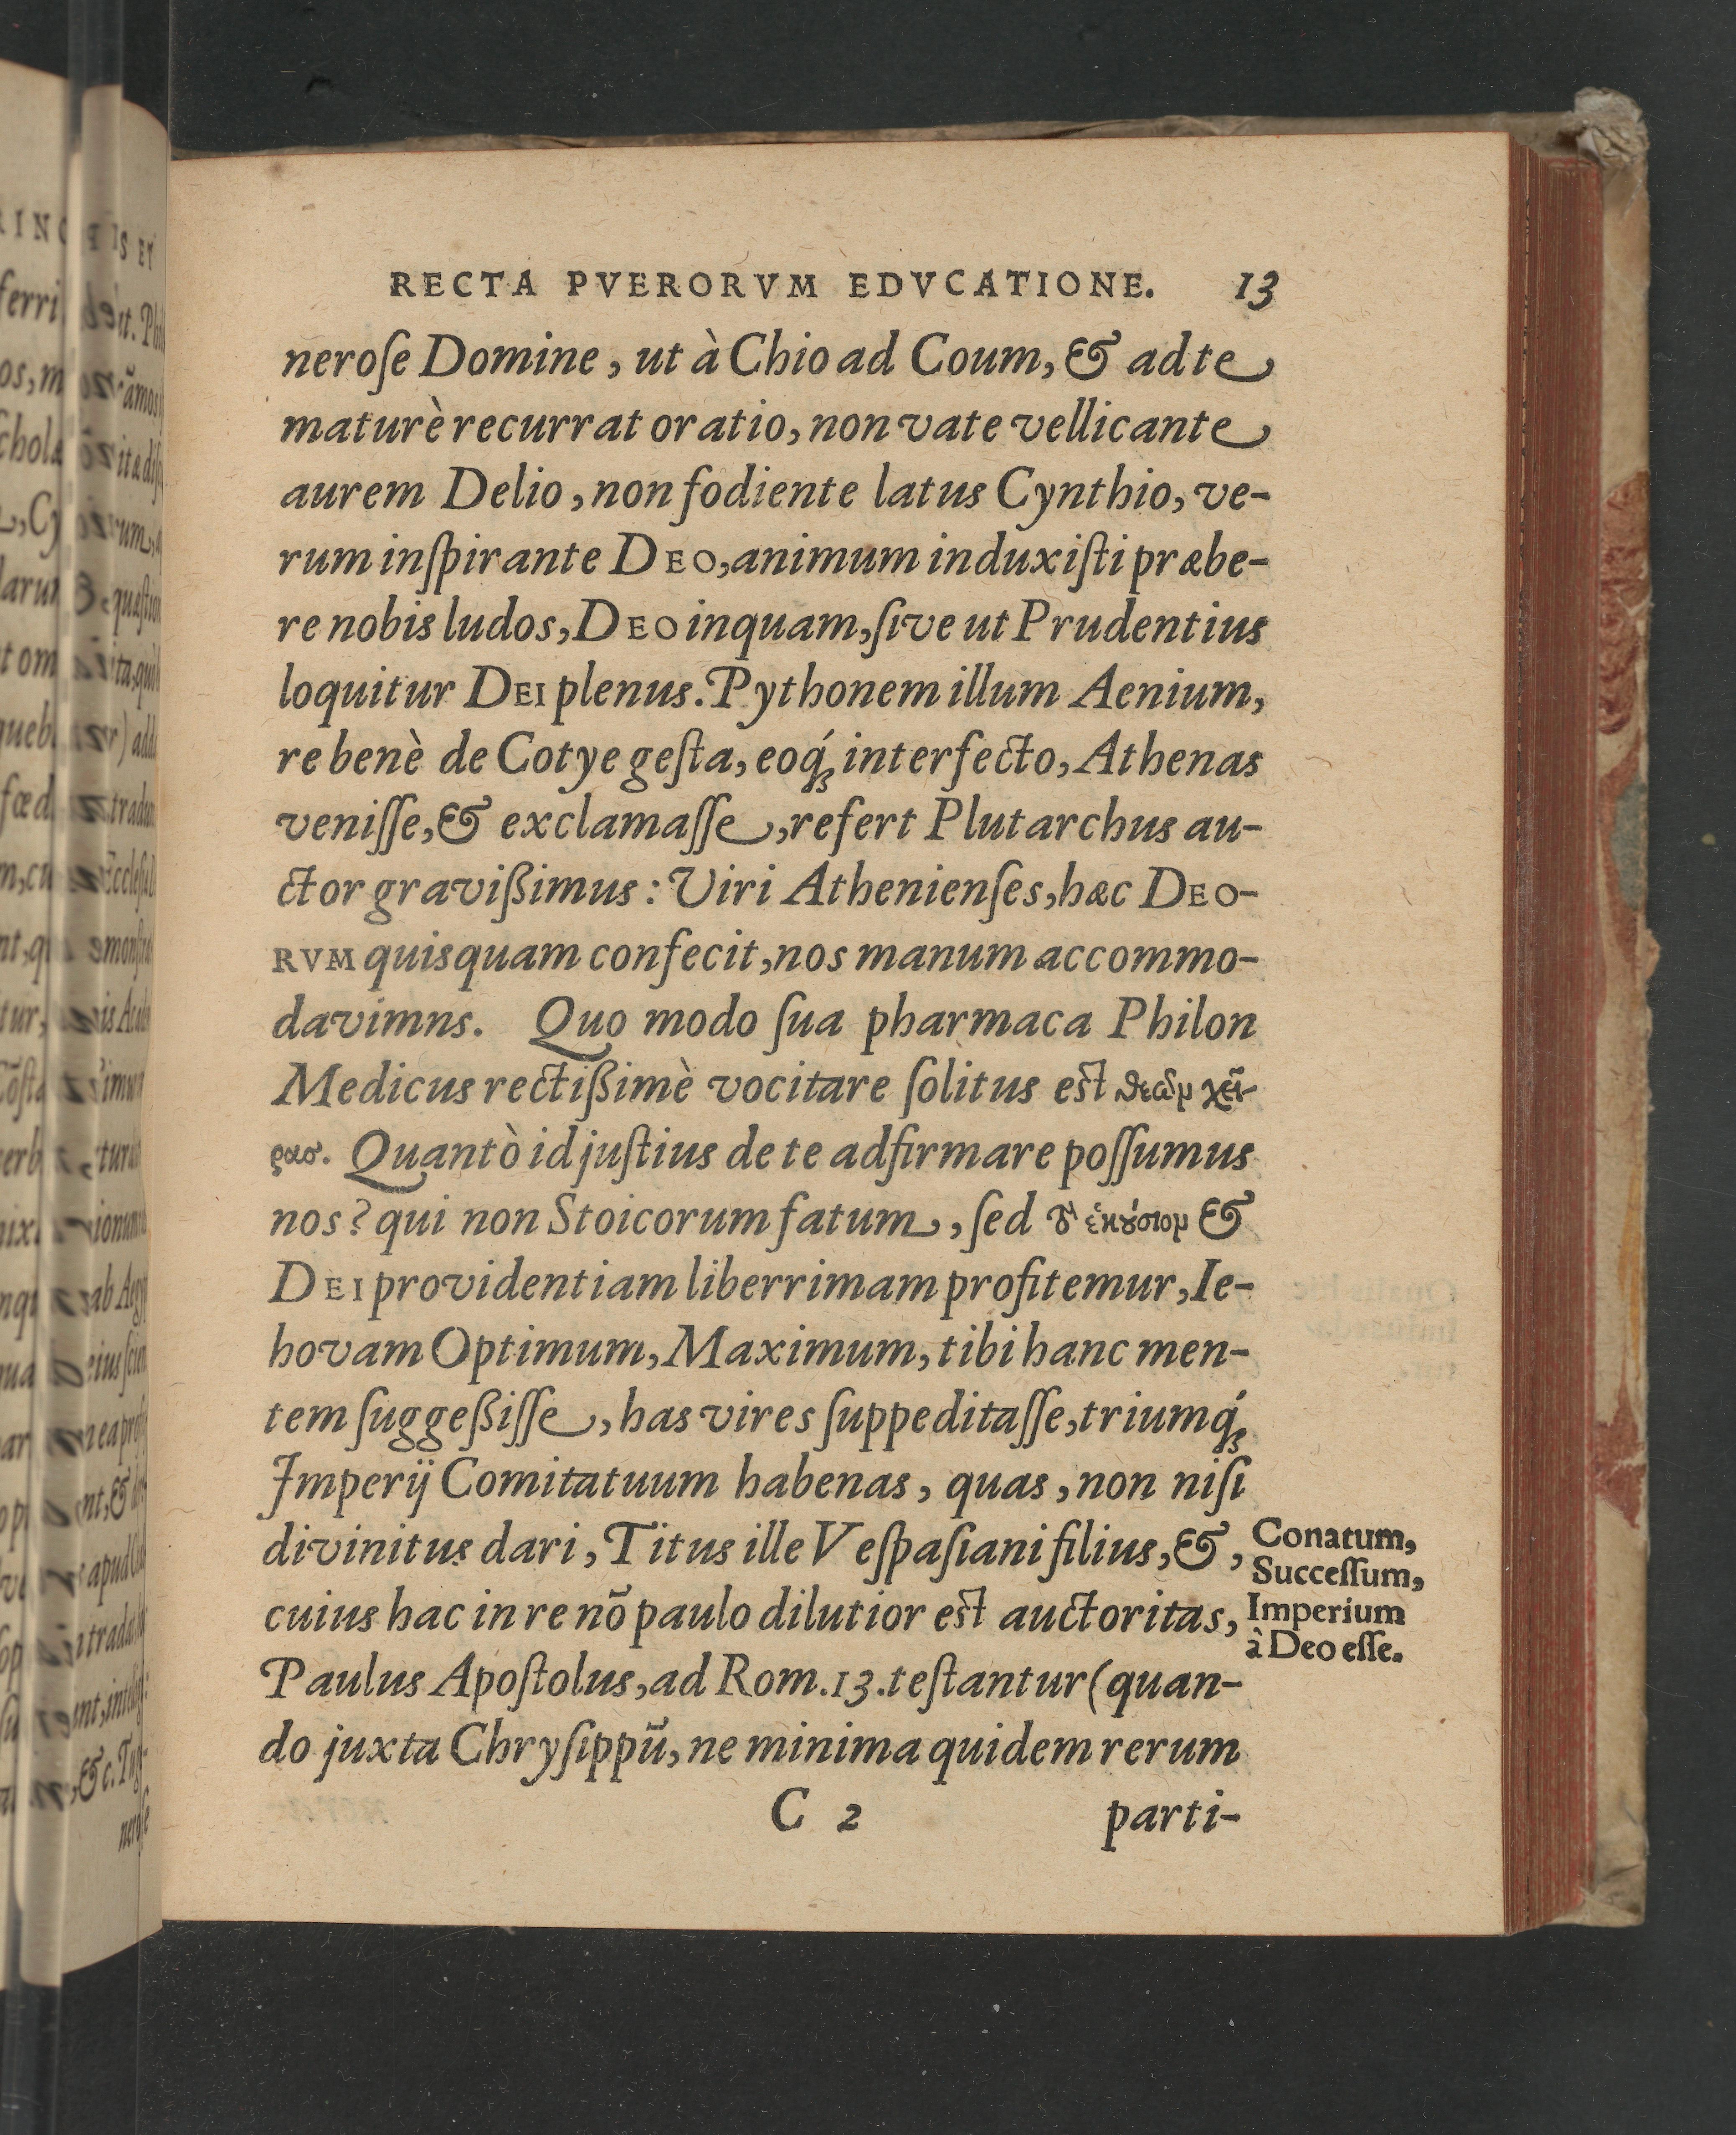 RECTA PVERORVM EDVCATIONE. 13
neroſe Domine, ut à Chio ad Coum, & ad te
maturè recurrat oratio, non vate vellicante
aurem Delio, non fodiente latus Cynthio, ve-
rum inſpirante DEO, animum induxiſti præbe-
re nobis ludos, DEO inquam, ſive ut Prudentius
loquitur DEI plenus. Pythonem illum Aenium,
re benè de Cotye geſta, eoq́ꝫ interfecto, Athenas
veniſſe, & exclamaſſe, refert Plutarchus au-
ctor gravißimus: Viri Athenienſes, hæc DEO-
RVM quisquam confecit, nos manum accommo-
davimns. Quo modo ſua pharmaca Philon
Medicus rectißimè vocitare ſolitus est θεῶν χεῖ-
ρασ. Quantò id juſtius de te adfirmare poſſumus
nos? qui non Stoicorum fatum, ſed τὸ ἑκούσιον &
DEI providentiam liberrimam profitemur, Ie-
hovam Optimum, Maximum, tibi hanc men-
tem ſuggeßiſſe, has vires ſuppeditaſſe, triumq́ꝫ
Imperij Comitatuum habenas, quas, non niſi
divinitus dari, Titus ille Veſpaſiani filius, &,
cuius hac in re nõ paulo dilutior est auctoritas,
Paulus Apoſtolus, ad Rom. 13. teſtantur (quan-
do juxta Chryſippũ, ne minima quidem rerum
C 2 parti-
Conatum,
Succeſſum,
Imperium
à Deo eſſe.